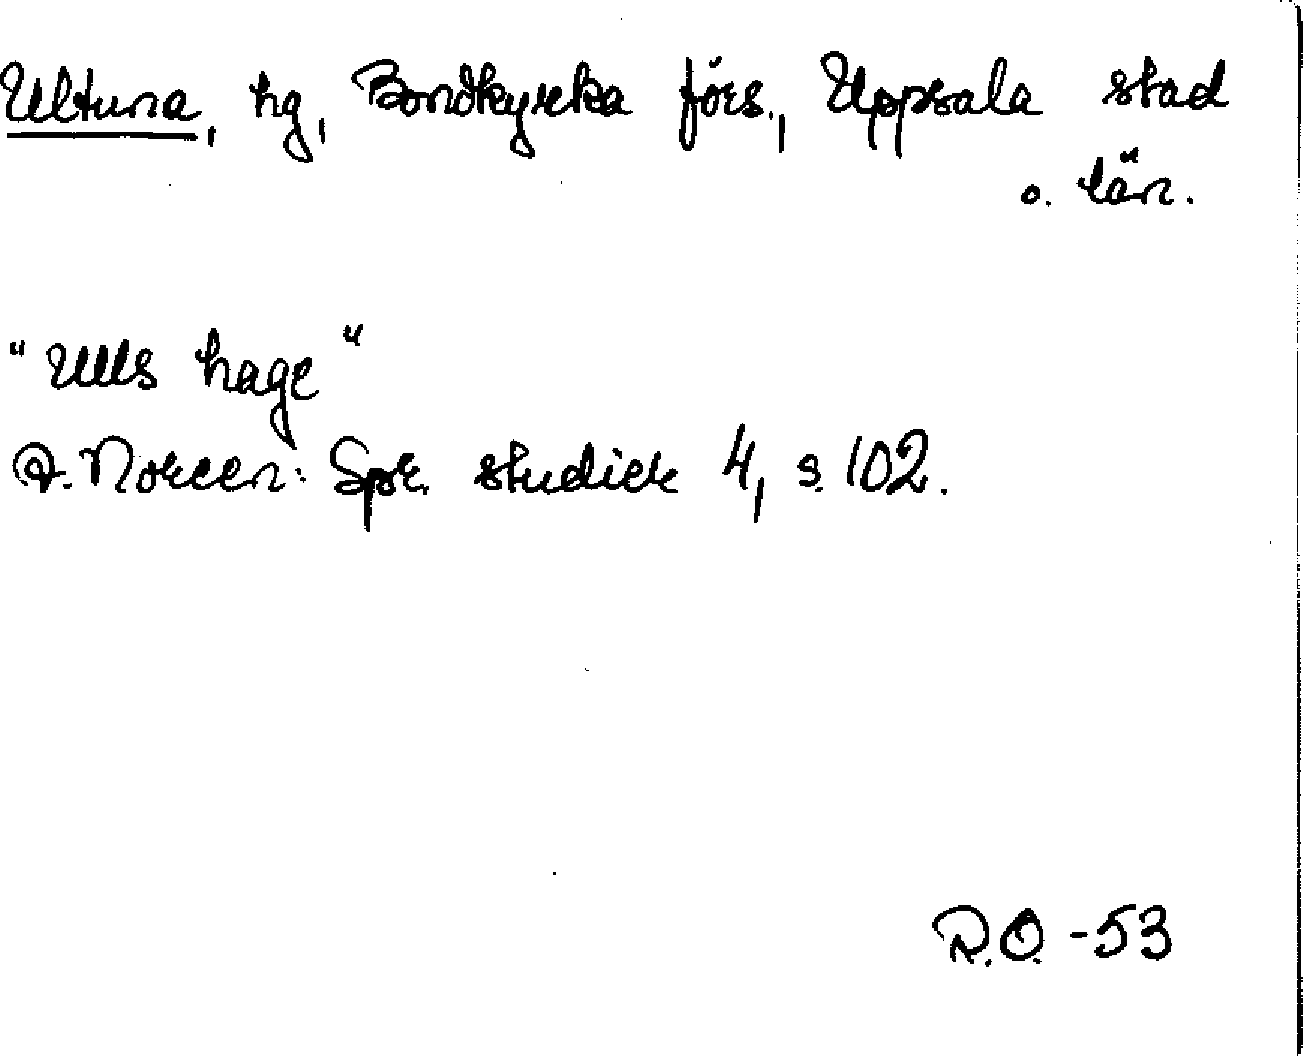 Ultuna, hg, Bondkyrka förs., Uppsala stad
o. län.
"Ulls hage"
A. Noreen: Spr. studier 4, s. 102.
R.O. -53